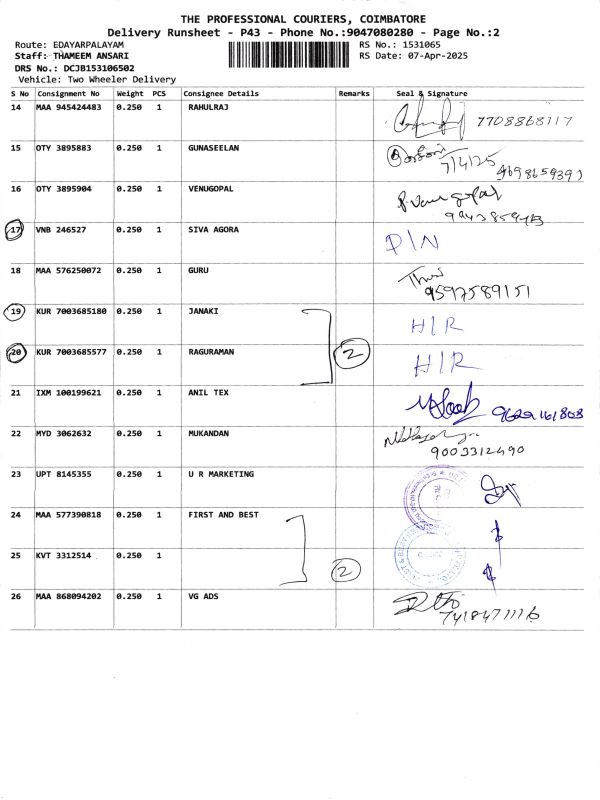 THE PROFESSIONAL COURIERS, COIMBATORE
Delivery Runsheet - P43 - Phone No.:9047080280 - Page No.:2
Route: EDAYARPALAYAM RS No.: 1531065
Staff: THAMEEM ANSARI RS Date: 07-Apr-2025
DRS No.: DCJB153106502
Vehicle: Two Wheeler Delivery
S No Consignment No Weight PCS Consignee Details Remarks Seal & Signature
14 MAA 945424483 0.250 1 RAHULRAJ 7708868117
15 OTY 3895883 0.250 1 GUNASEELAN 7/4/25
16 OTY 3895904 0.250 1 VENUGOPAL
17 VNB 246527 0.250 1 SIVA AGORA D/N
18 MAA 576250072 0.250 1 GURU 9597589151
19 KUR 7003685180 0.250 1 JANAKI H/R
20 KUR 7003685577 0.250 1 RAGURAMAN 2 H/R
21 IXM 100199621 0.250 1 ANIL TEX 9629161808
22 MYD 3062632 0.250 1 MUKANDAN 9003312490
23 UPT 8145355 0.250 1 U R MARKETING
24 MAA 577390818 0.250 1 FIRST AND BEST
25 KVT 3312514 0.250 1 2
26 MAA 868094202 0.250 1 VG ADS